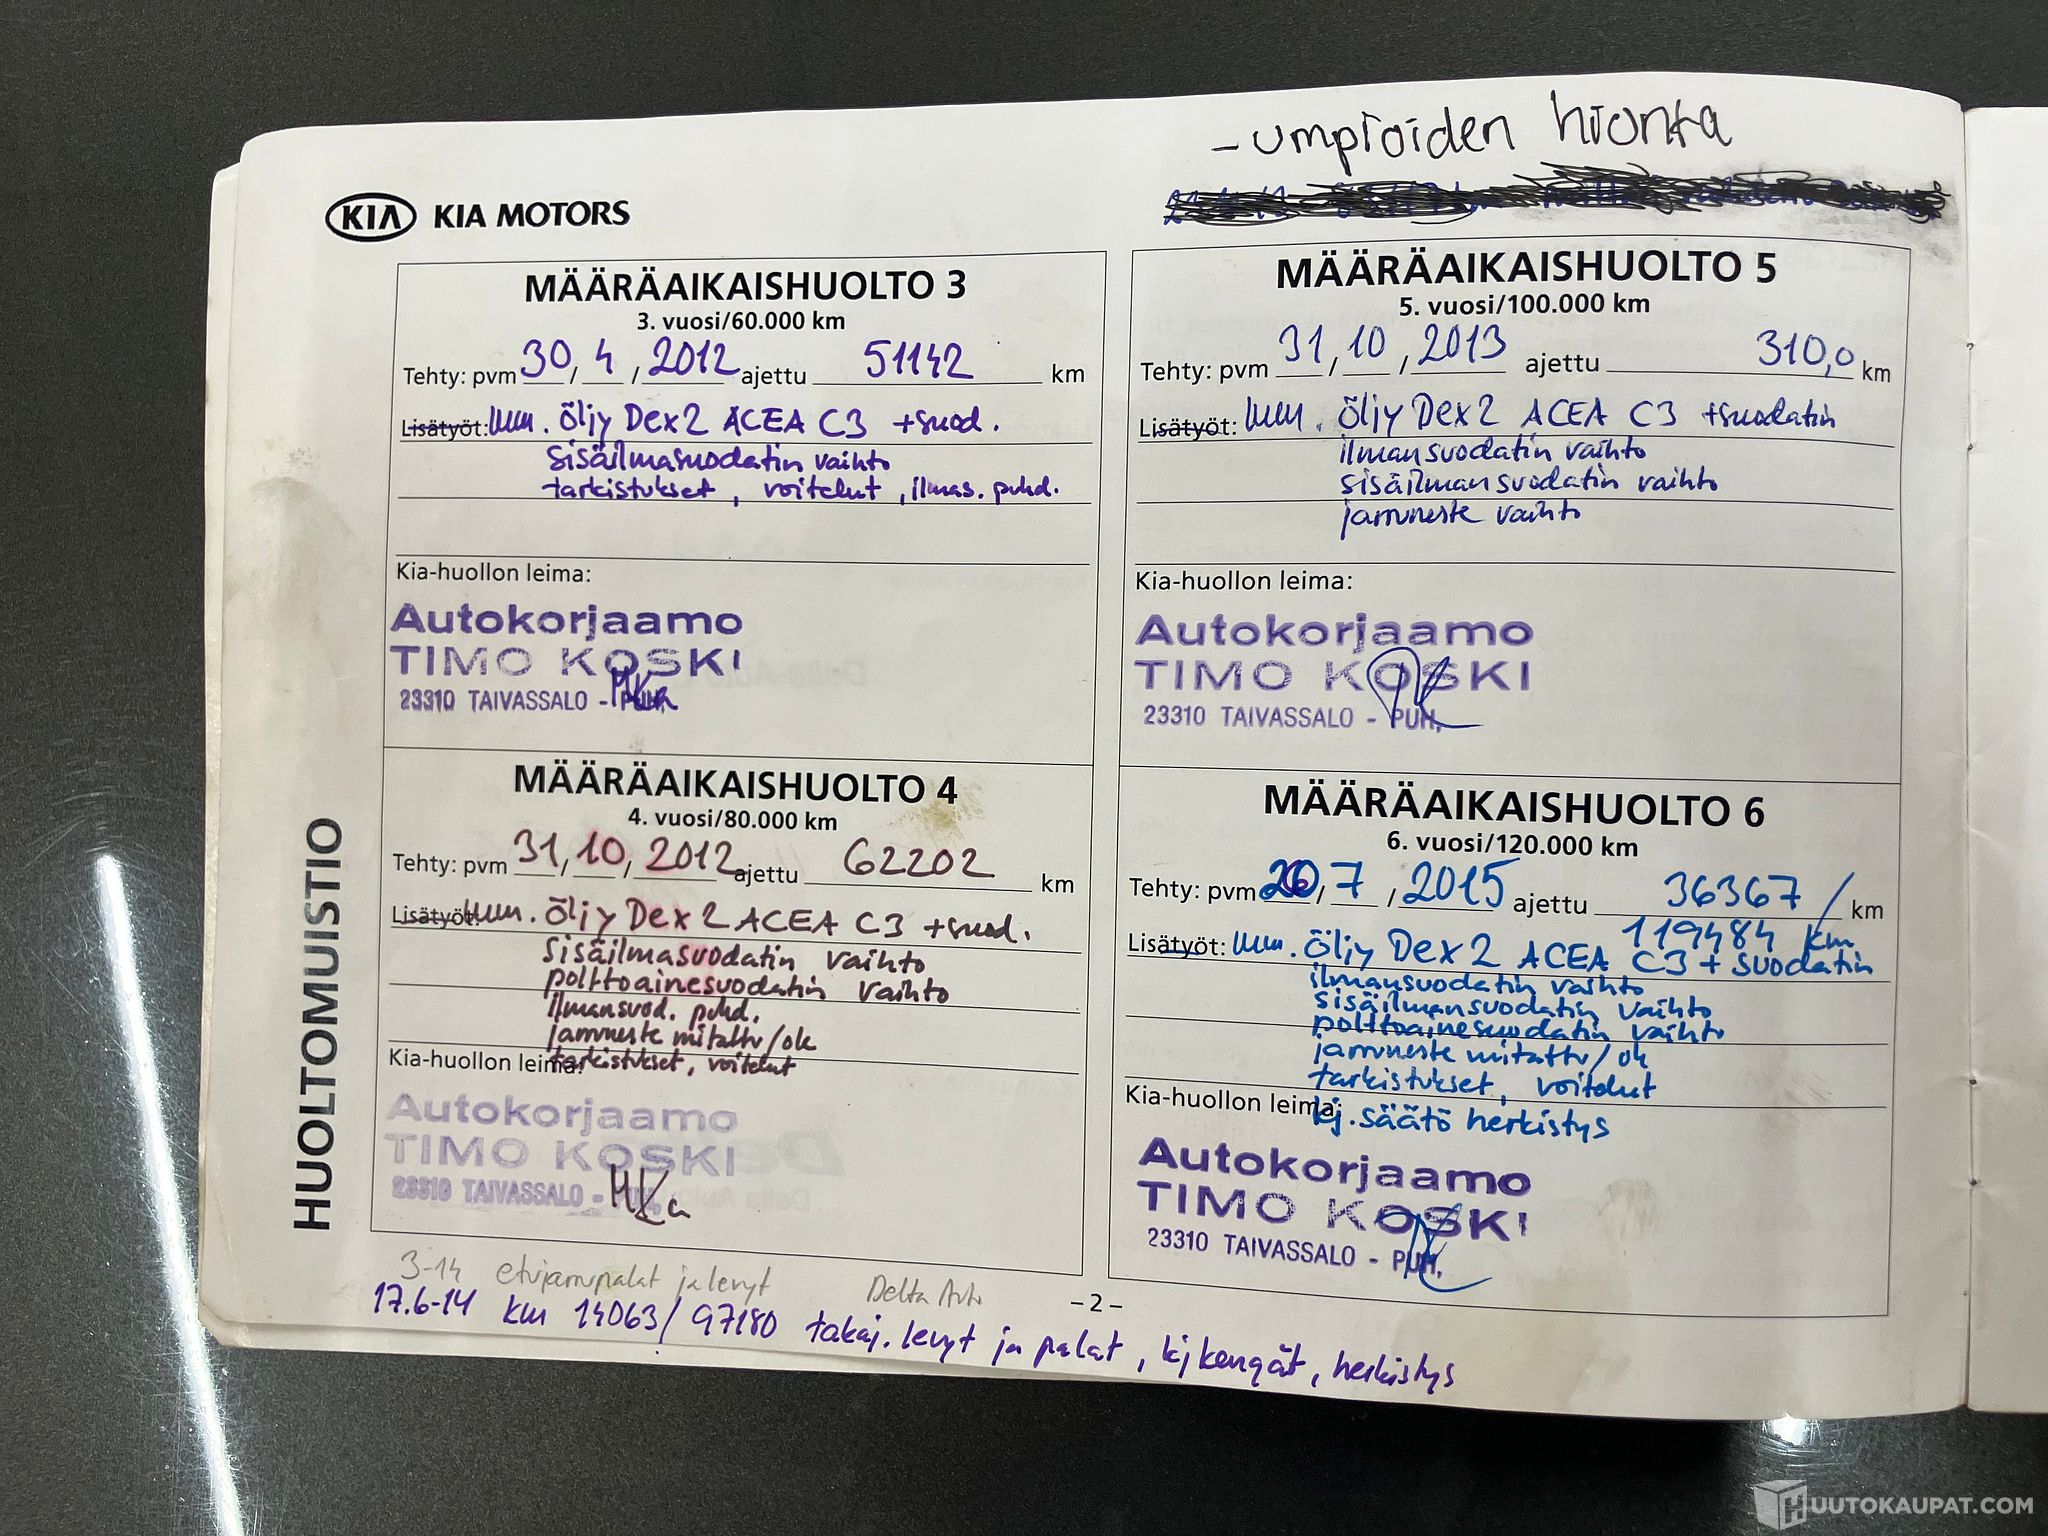 - umpioiden hionta
KIA KIA MOTORS
HUOLTOMUISTIO
MÄÄRÄAIKAISHUOLTO 3
3. vuosi/60.000 km
Tehty: pvm 30 / 4 / 2012 ajettu 51142 km
Lisätyöt: mm. öljy Dex2 ACEA C3 +suod.
sisäilmasuodatin vaihto
tarkistukset, voitelut, ilmas. puhd.
Kia-huollon leima:
Autokorjaamo
TIMO KOSKI
23310 TAIVASSALO - PUH.
MÄÄRÄAIKAISHUOLTO 4
4. vuosi/80.000 km
Tehty: pvm 31 / 10 / 2012 ajettu 62202 km
Lisätyöt: mm. öljy Dex2 ACEA C3 +suod.
sisäilmasuodatin vaihto
polttoainesuodatin vaihto
ilmansuod. puhd.
jarruneste mitattu/ok
tarkistukset, voitelut
Kia-huollon leima:
Autokorjaamo
TIMO KOSKI
23310 TAIVASSALO - PUH.
MÄÄRÄAIKAISHUOLTO 5
5. vuosi/100.000 km
Tehty: pvm 31 / 10 / 2013 ajettu 310,0 km
Lisätyöt: mm. öljy Dex2 ACEA C3 +suodatin
ilmansuodatin vaihto
sisäilmansuodatin vaihto
jarruneste vaihto
Kia-huollon leima:
Autokorjaamo
TIMO KOSKI
23310 TAIVASSALO - PUH.
MÄÄRÄAIKAISHUOLTO 6
6. vuosi/120.000 km
Tehty: pvm / 7 / 2015 ajettu 36367 / km
119484 km
Lisätyöt: mm. öljy Dex2 ACEA C3 + suodatin
ilmansuodatin vaihto
sisäilmansuodatin vaihto
polttoainesuodatin vaihto
jarruneste mitattu/ok
tarkistukset, voitelut
Kia-huollon leima:
kj. säätö herkistys
Autokorjaamo
TIMO KOSKI
23310 TAIVASSALO - PUH.
3-14 etujarrupalat ja levyt Delta Auto
-2-
17.6-14 km 14063/97180 takaj. levyt ja palat, kj kengät, herkistys
HUUTOKAUPAT.COM